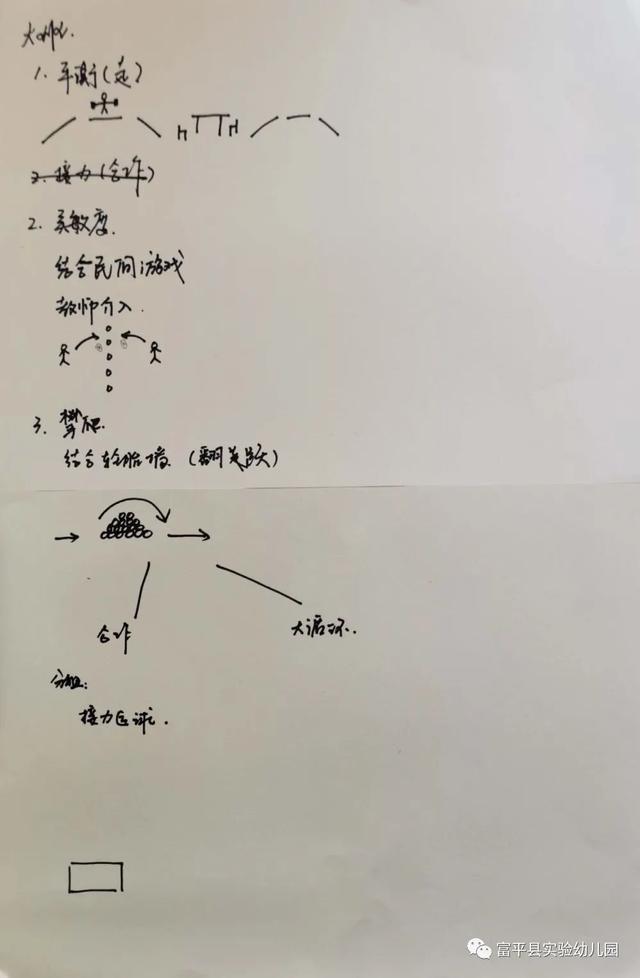 1. 平衡(走)
2. 接力(合作)
2. 灵敏度.
结合民间游戏
教师介入.
3. 攀爬.
结合轮胎墙. (翻越)
合作
大循环.
分组:
接力
富平县实验幼儿园